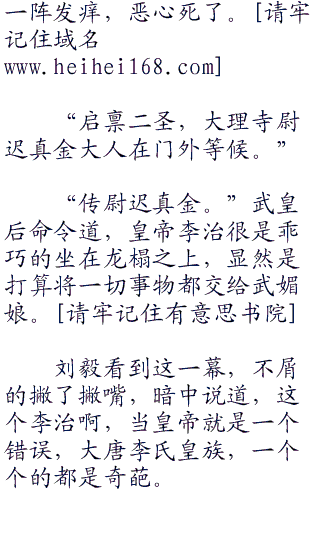 一阵发痒，恶心死了。[请牢
记住域名
www.heihei168.com]
“启禀二圣，大理寺尉
迟真金大人在门外等候。”
“传尉迟真金。”武皇
后命令道，皇帝李治很是乖
巧的坐在龙榻之上，显然是
打算将一切事物都交给武媚
娘。[请牢记住有意思书院]
刘毅看到这一幕，不屑
的撇了撇嘴，暗中说道，这
个李治啊，当皇帝就是一个
错误，大唐李氏皇族，一个
个的都是奇葩。